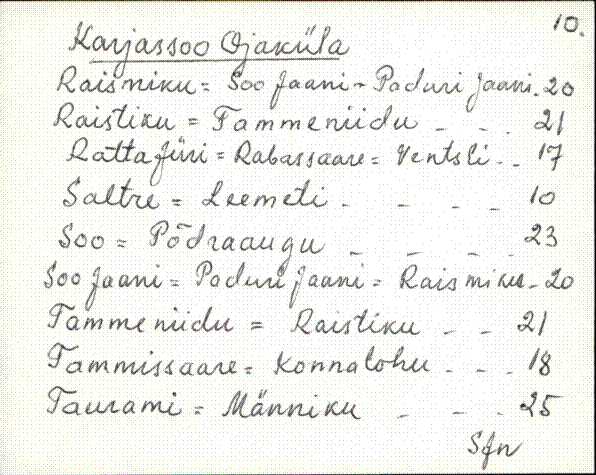 10.
Karjassoo Ojaküla
Raismiku = Soo Jaani - Paduri Jaani. 20
Raistiku = Tammeniidu - - . 21
Rattajüri = Rabassaare = Ventsli . - 17
Saltre = Leemeti - - - - 10
Soo = Põdraaugu - - - - 23
Soo Jaani = Paduri Jaani = Raismiku - 20
Tammeniidu = Raistiku - - 21
Tammissaare = Konnalohu - - - 18
Taurami = Männiku - - - 25